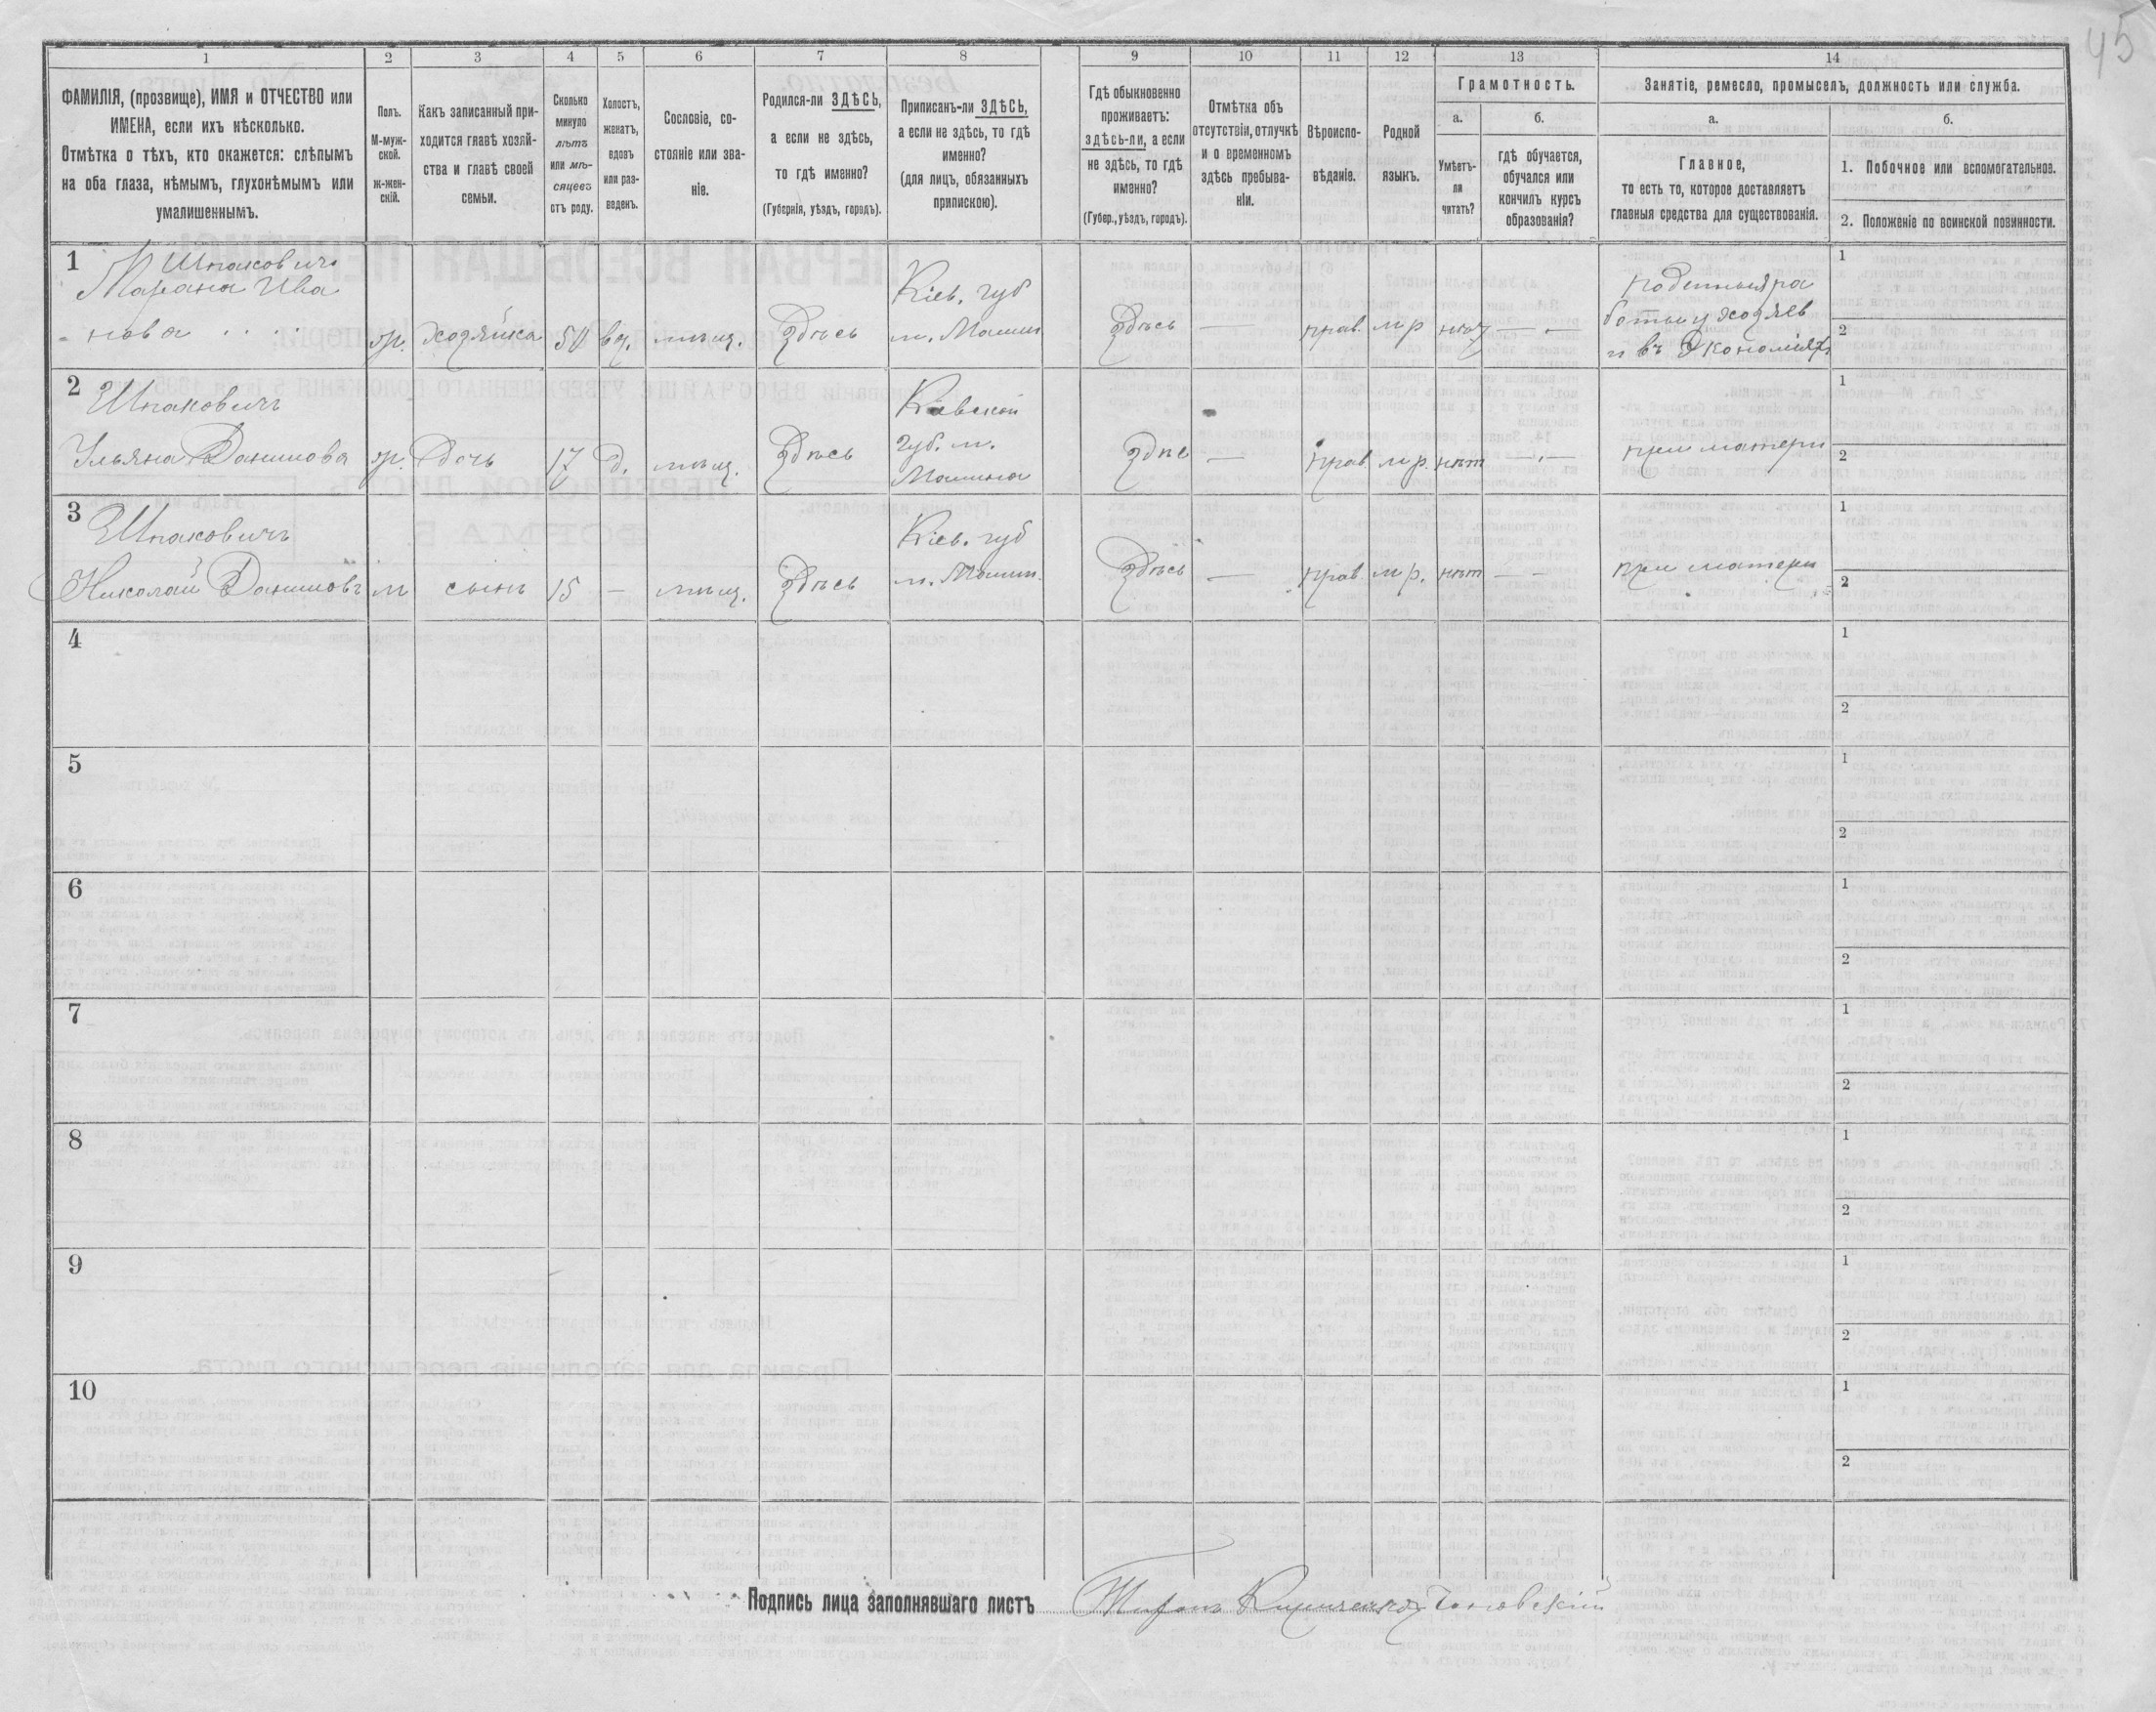 45
1
2
3
4
5
6
7
8
9
10
11
12
13
14
ФАМИЛІЯ, (прозвище), ИМЯ и ОТЧЕСТВО или
ИМЕНА, если ихъ нѣсколько.
Отмѣтка о тѣхъ, кто окажется: слѣпымъ
на оба глаза, нѣмымъ, глухонѣмымъ или
умалишеннымъ.
Полъ.
М-муж-
ской.
Ж-жен-
скій.
Какъ записанный при-
ходится главѣ хозяй-
ства и главѣ своей
семьи.
Сколько
минуло
лѣтъ
или мѣ-
сяцевъ
отъ роду.
Холостъ,
женатъ,
вдовъ
или раз-
веденъ.
Сословіе, со-
стояніе или зва-
ніе.
Родился-ли ЗДѢСЬ,
а если не здѣсь,
то гдѣ именно?
(Губернія, уѣздъ, городъ).
Приписанъ-ли ЗДѢСЬ,
а если не здѣсь, то гдѣ
именно?
(для лицъ, обязанныхъ
припискою).
Гдѣ обыкновенно
проживаетъ:
здѣсь-ли, а если
не здѣсь, то гдѣ
именно?
(Губер., уѣздъ, городъ).
Отмѣтка объ
отсутствіи, отлучкѣ
и о временномъ
здѣсь пребыва-
ніи.
Вѣроиспо-
вѣданіе.
Родной
языкъ.
Грамотность.
а.
Умѣетъ-
ли
читать?
б.
гдѣ обучается,
обучался или
кончилъ курсъ
образованія?
Занятіе, ремесло, промыселъ, должность или служба.
а.
Главное,
то есть то, которое доставляетъ
главныя средства для существованія.
б.
1. Побочное или вспомогательное.
2. Положеніе по воинской повинности.
1
Шпаковичъ
Марана Ива
нова
ж. хозяйка 50 вд. мѣщ. Здѣсь
Кіев. губ
м. Мошны
Здѣсь — прав. мр нѣт — —
поденныя ра
боты у хозяев
и въ Экономіях
1
2
2
Шпаковичъ
Ульяна Данилова ж. Дочь 17 д. мѣщ. Здѣсь
Кіевской
губ. м.
Мошны
Здѣсь — прав. мр. нѣт — —
при матери
1
2
3
Шпаковичъ
Николай Даниловъ м сынъ 15 — мѣщ. Здѣсь
Кіев. губ
м. Мошн.
Здѣсь — прав. мр. нѣт — —
при матери
1
2
4
1
2
5
1
2
6
1
2
7
1
2
8
1
2
9
1
2
10
1
2
Подпись лица заполнявшаго листъ